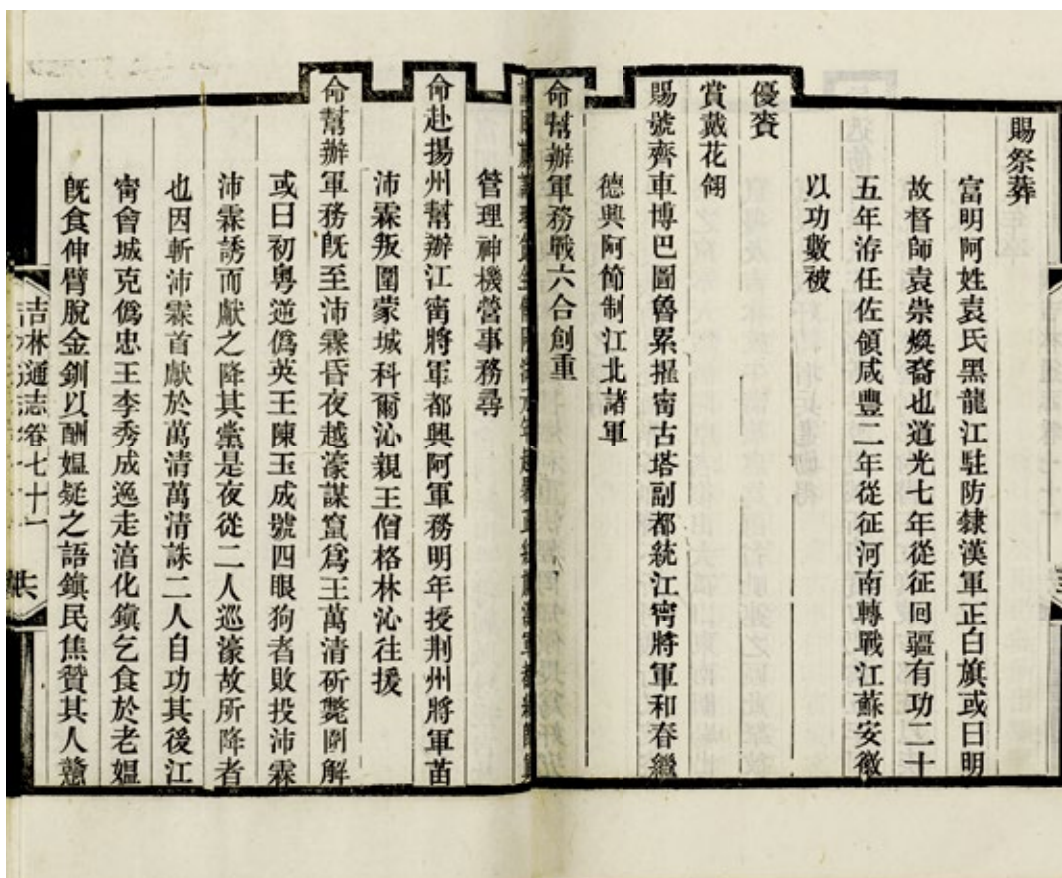 賜祭葬
富明阿姓袁氏黑龍江駐防隸漢軍正白旗或曰明
故督師袁崇煥裔也道光七年從征回疆有功二十
五年洊任佐領咸豐二年從征河南轉戰江蘇安徽
以功數被
優賚
賞戴花翎
賜號齊車博巴圖魯累擢甯古塔副都統江甯將軍和春繼
德興阿節制江北諸軍
命幫辦軍務戰六合創重
管理神機營事務尋
命赴揚州幫辦江甯將軍都興阿軍務明年授荆州將軍苗
沛霖叛圍蒙城科爾沁親王僧格林沁往援
命幫辦軍務旣至沛霖昏夜越濠謀竄爲王萬清斫斃圍解
或曰初粤逆僞英王陳玉成號四眼狗者敗投沛霖
沛霖誘而獻之降其黨是夜從二人巡濠故所降者
也因斬沛霖首獻於萬清萬清誅二人自功其後江
甯會城克僞忠王李秀成逸走湻化鎭乞食於老媪
旣食伸臂脫金釧以酬媪疑之語鎭民焦贊其人戇
吉林通志卷七十一